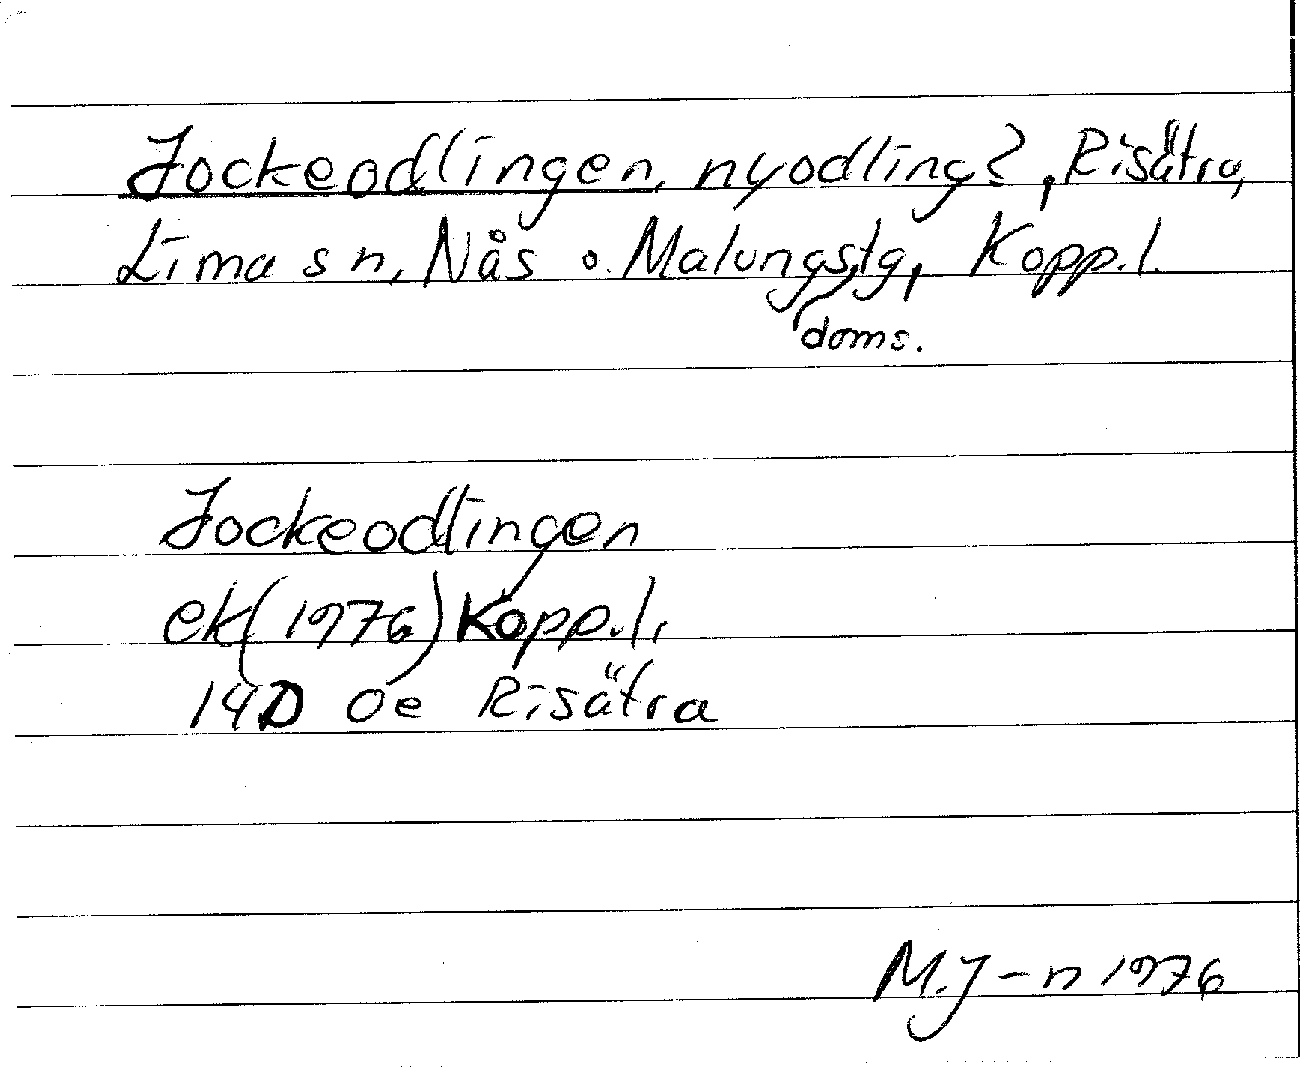 Jockeodlingen, nyodling?, Risätra,
Lima sn, Nås o. Malungs tg, Kopp.l.
doms.
Jockeodlingen
ek (1976) Kopp.l.
14D 0e Risätra
M.J-n 1976